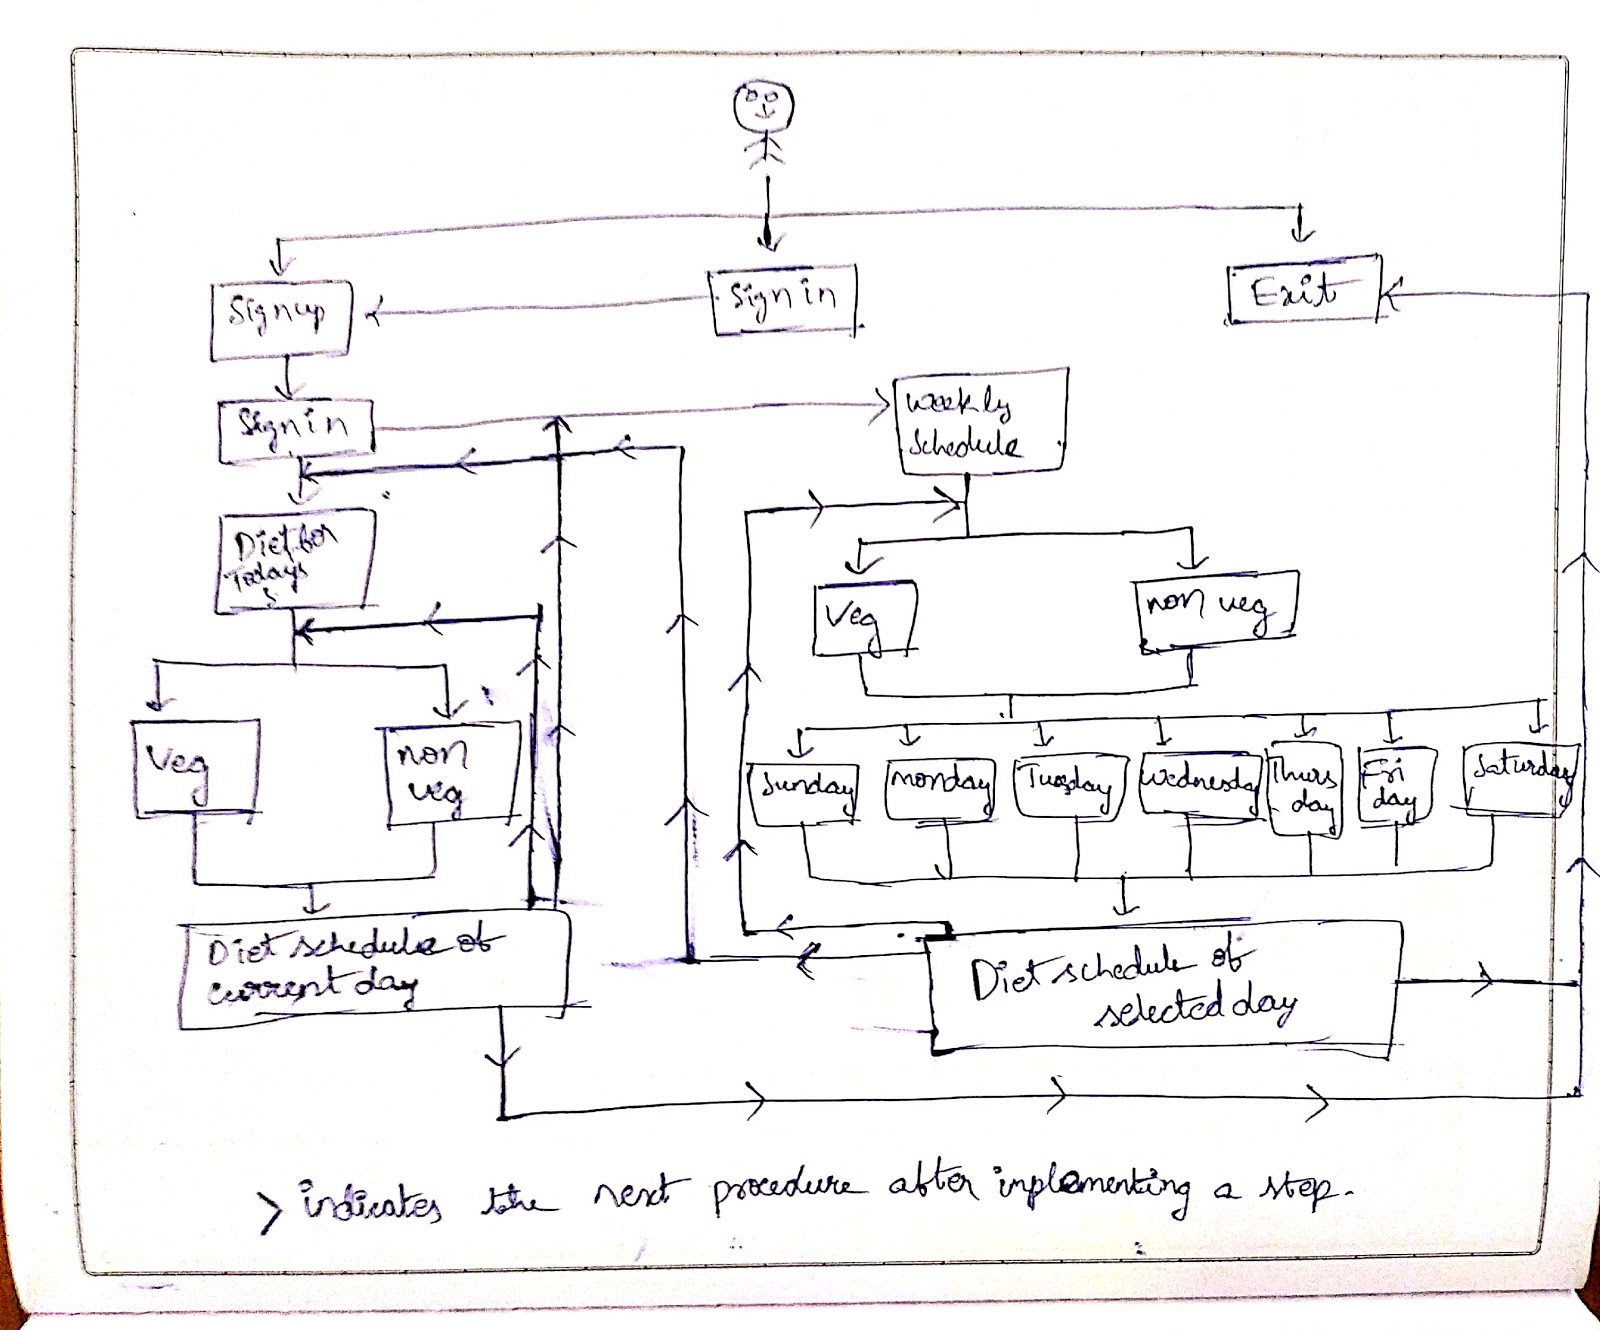 Signup
Sign in
Exit
Sign in
weekly
schedule
Diet for
Todays
Veg
non veg
Veg
non
veg
Sunday
monday
Tuesday
wednesday
Thurs
day
Fri
day
Saturday
Diet schedule of
current day
Diet schedule of
selected day
> indicates the next procedure after implementing a step.